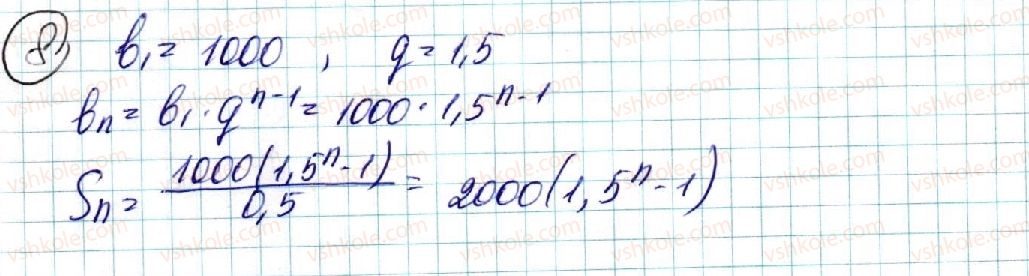 8) b₁ = 1000 , q = 1,5
bₙ = b₁ · qⁿ⁻¹ = 1000 · 1,5ⁿ⁻¹
Sₙ = 1000(1,5ⁿ - 1) / 0,5 = 2000(1,5ⁿ - 1)